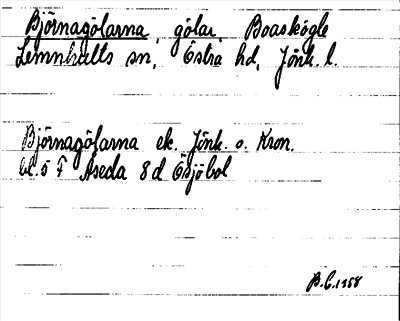 Björnagölarna, gölar, Boaskögle
Lemnhults sn, Östra hd, Jönk. l.
Björnagölarna ek. Jönk. o. Kron.
bl. 5 F Åseda 8 d Ösjöbol
B.C. 1958